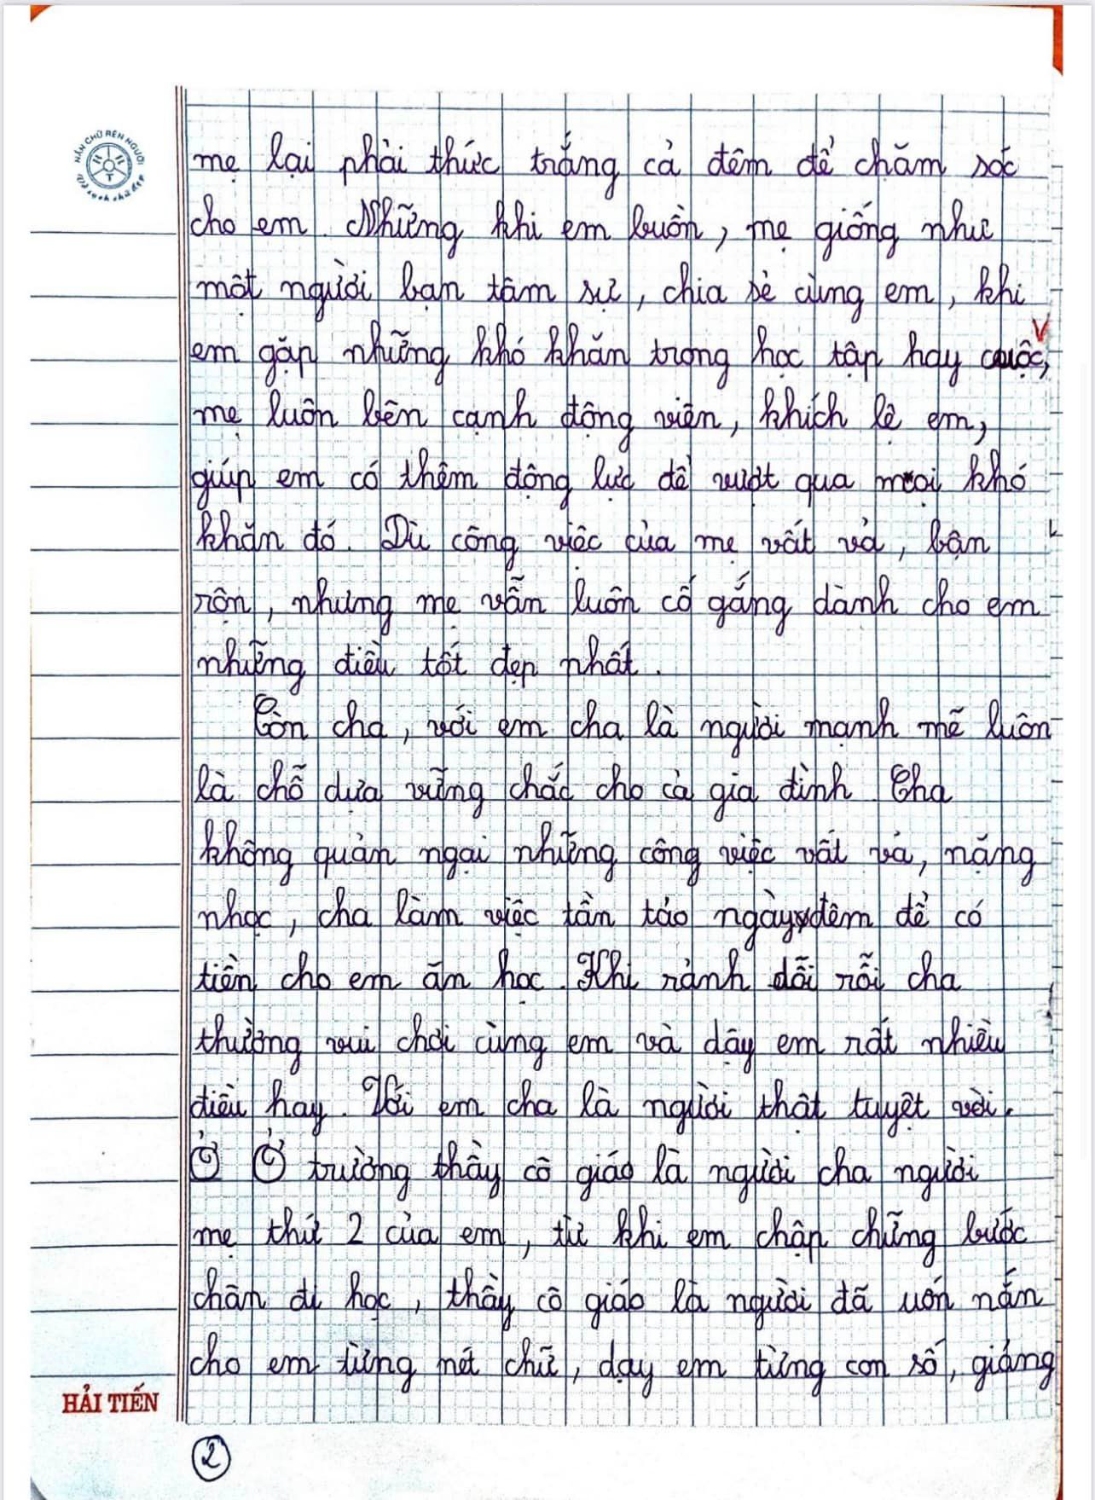 NẮN CHỮ RÈN NGƯỜI
mẹ lại phải thức trắng cả đêm để chăm sóc
cho em. Những khi em buồn, mẹ giống như
một người bạn tâm sự, chia sẻ cùng em, khi
em gặp những khó khăn trong học tập hay cuộc,
mẹ luôn bên cạnh động viên, khích lệ em,
giúp em có thêm động lực để vượt qua mọi khó
khăn đó. Dù công việc của mẹ vất vả, bận
rộn, nhưng mẹ vẫn luôn cố gắng dành cho em
những điều tốt đẹp nhất.
Còn cha, với em cha là người mạnh mẽ luôn
là chỗ dựa vững chắc cho cả gia đình. Cha
không quản ngại những công việc vất vả, nặng
nhọc, cha làm việc tần tảo ngày đêm để có
tiền cho em ăn học. Khi rảnh dỗi rỗi cha
thường vui chơi cùng em và dậy em rất nhiều
điều hay. Với em cha là người thật tuyệt vời.
Ở Ở trường thầy cô giáo là người cha người
mẹ thứ 2 của em, từ khi em chập chững bước
chân đi học, thầy cô giáo là người đã uốn nắn
cho em từng nét chữ, dạy em từng con số, giảng
HẢI TIẾN
2